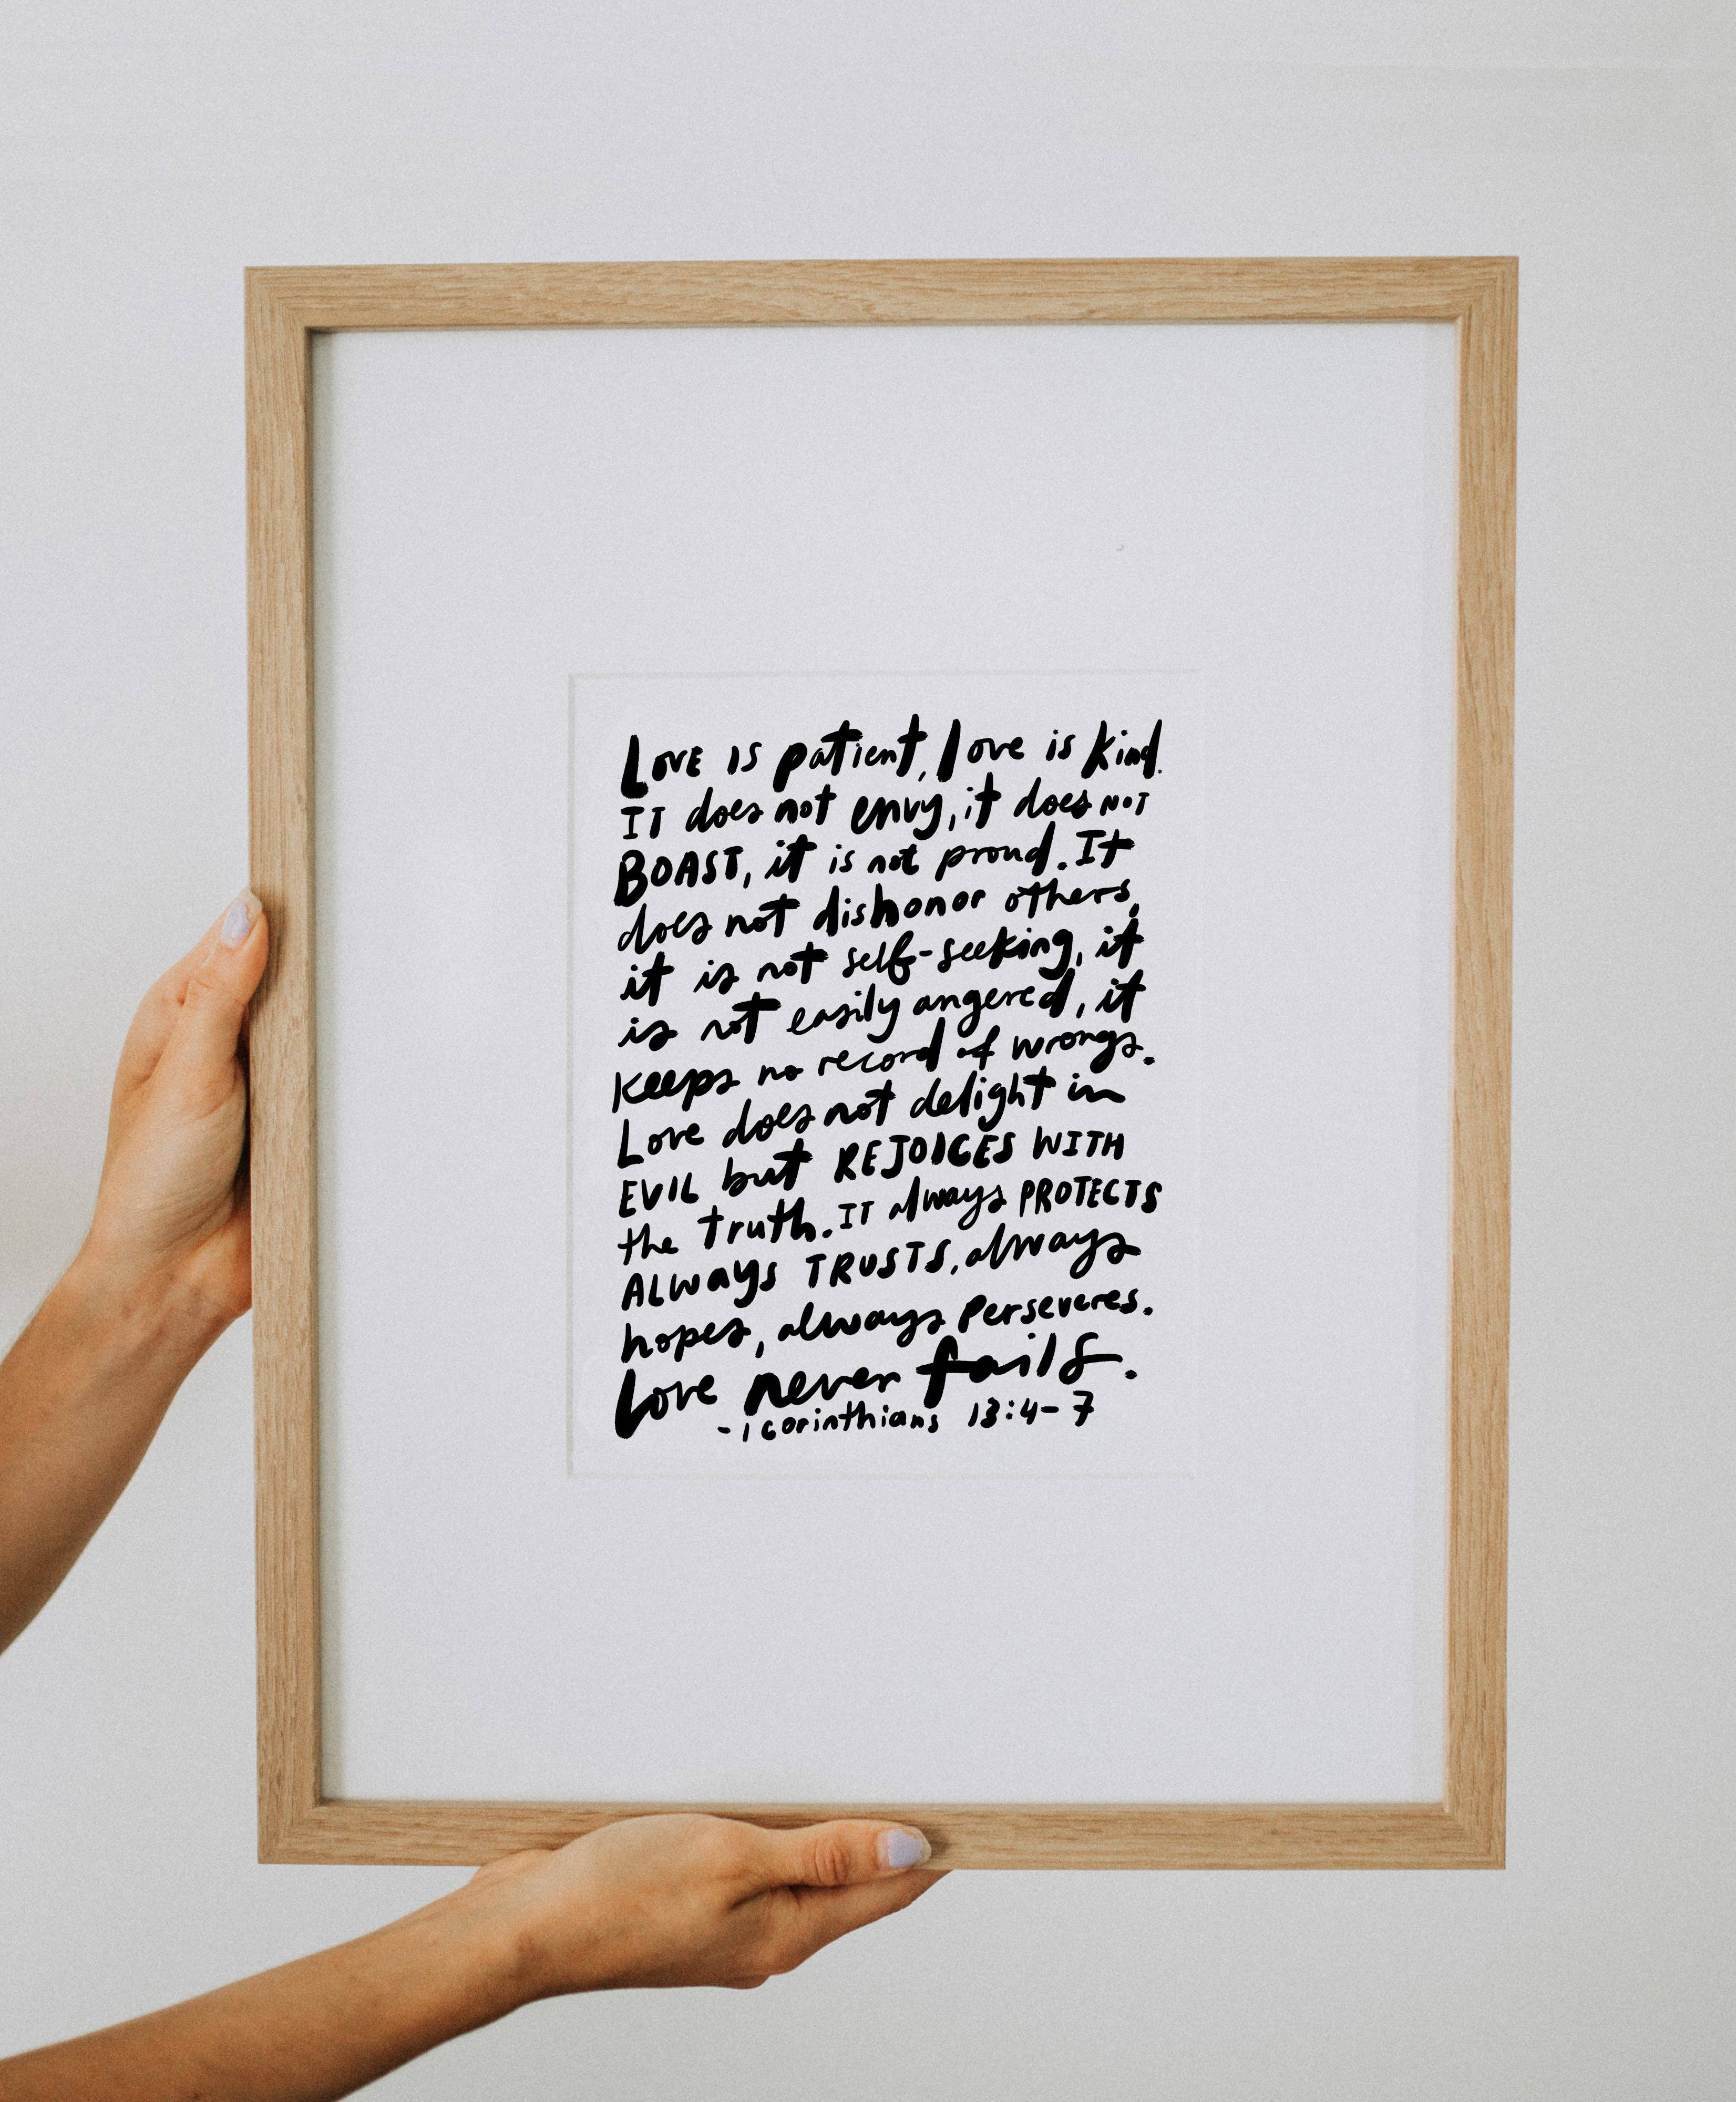 Love is patient, love is kind.
IT does not envy, it does NOT
BOAST, it is not proud. It
does not dishonor others,
it is not self-seeking, it
is not easily angered, it
keeps no record of wrongs.
Love does not delight in
EVIL but REJOICES WITH
the truth. IT always PROTECTS
ALWAYS TRUSTS, always
hopes, always perseveres.
Love never fails.
- 1 corinthians 13:4-7